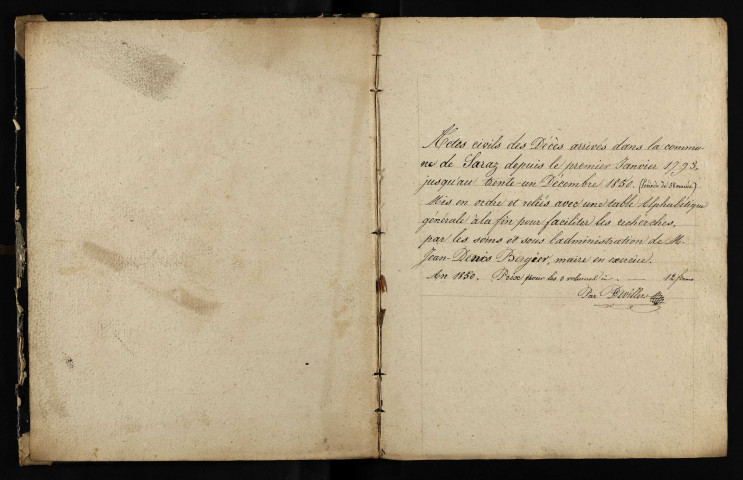 Actes civils des Décès arrivés dans la commu-
ne de Saraz depuis le premier Janvier 1793.
jusqu'au trente-un Décembre 1850. (Période de 58 années)
Mis en ordre et reliés avec une table Alphabétique
générale à la fin pour faciliter les recherches,
par les soins et sous l'administration de M.
Jean-Denis Bergier, maire en exercice.
An 1850. Prix pour les volumes à 12 francs
Par Deviller